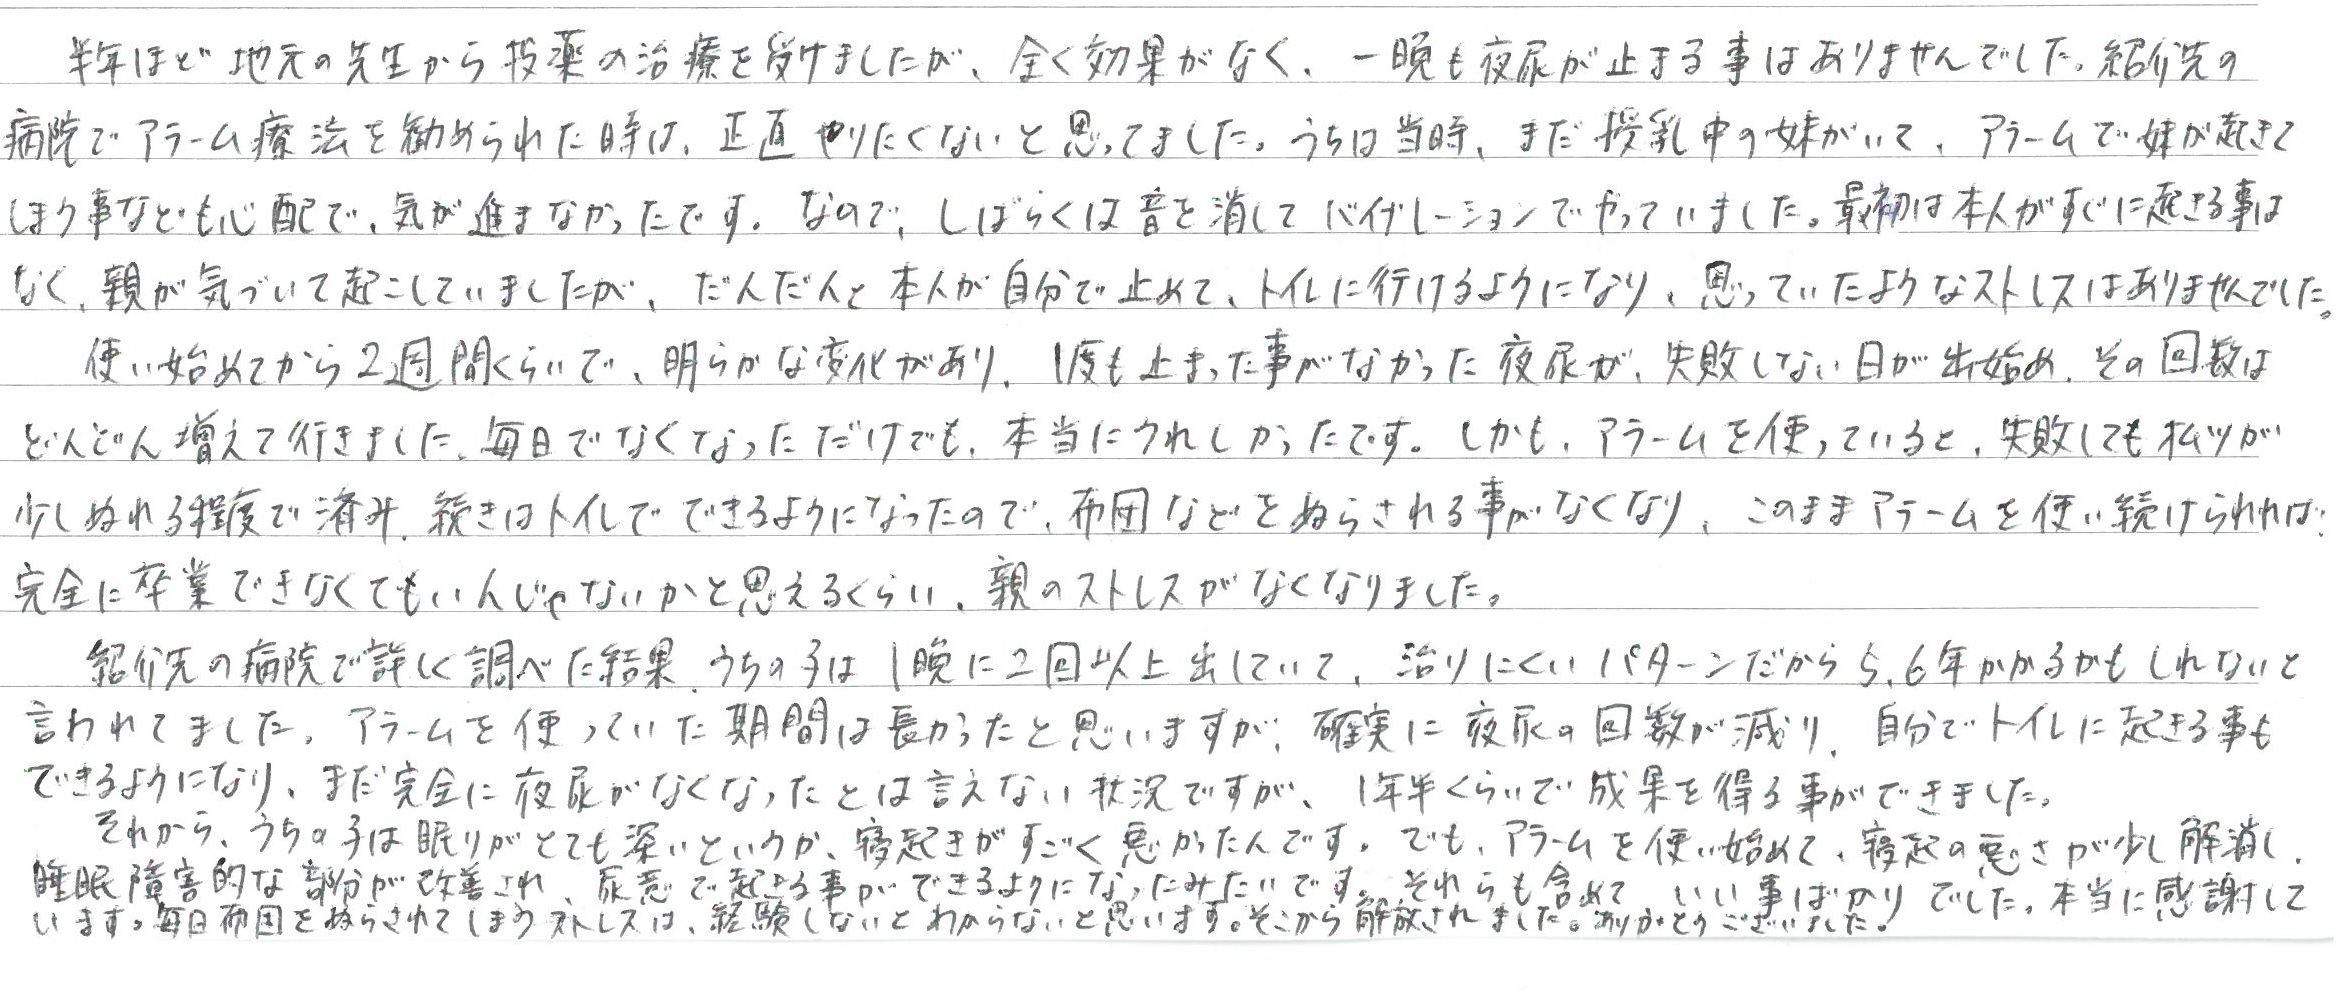 半年ほど地元の先生から投薬の治療を受けましたが、全く効果がなく、一晩も夜尿が止まる事はありませんでした。紹介先の
病院でアラーム療法を勧められた時は、正直やりたくないと思ってました。うちは当時、まだ授乳中の妹がいて、アラームで妹が起きて
しまう事なども心配で、気が進まなかったです。なので、しばらくは音を消してバイブレーションでやっていました。最初は本人がすぐに起きる事は
なく、親が気づいて起こしていましたが、だんだんと本人が自分で止めて、トイレに行けるようになり、思っていたようなストレスはありませんでした。
使い始めてから2週間くらいで、明らかな変化があり、1度も止まった事がなかった夜尿が、失敗しない日が出始め、その回数は
どんどん増えて行きました。毎日でなくなっただけでも、本当にうれしかったです。しかも、アラームを使っていると、失敗してもパンツが
少しぬれる程度で済み、続きはトイレでできるようになったので、布団などをぬらされる事がなくなり、このままアラームを使い続けられれば、
完全に卒業できなくてもいいんじゃないかと思えるくらい、親のストレスがなくなりました。
紹介先の病院で詳しく調べた結果、うちの子は1晩に2回以上出していて、治りにくいパターンだから5、6年かかるかもしれないと
言われてました。アラームを使っていた期間は長かったと思いますが、確実に夜尿の回数が減り、自分でトイレに起きる事も
できるようになり、まだ完全に夜尿がなくなったとは言えない状況ですが、1年半くらいで成果を得る事ができました。
それから、うちの子は眠りがとても深いというか、寝起きがすごく悪かったんです。でも、アラームを使い始めて、寝起の悪さが少し解消し、
睡眠障害的な部分が改善され、尿意で起きる事ができるようになったみたいです。それらも含めて、いい事ばかりでした。本当に感謝して
います。毎日布団をぬらされてしまうストレスは、経験しないとわからないと思います。そこから解放されました。ありがとうございました。